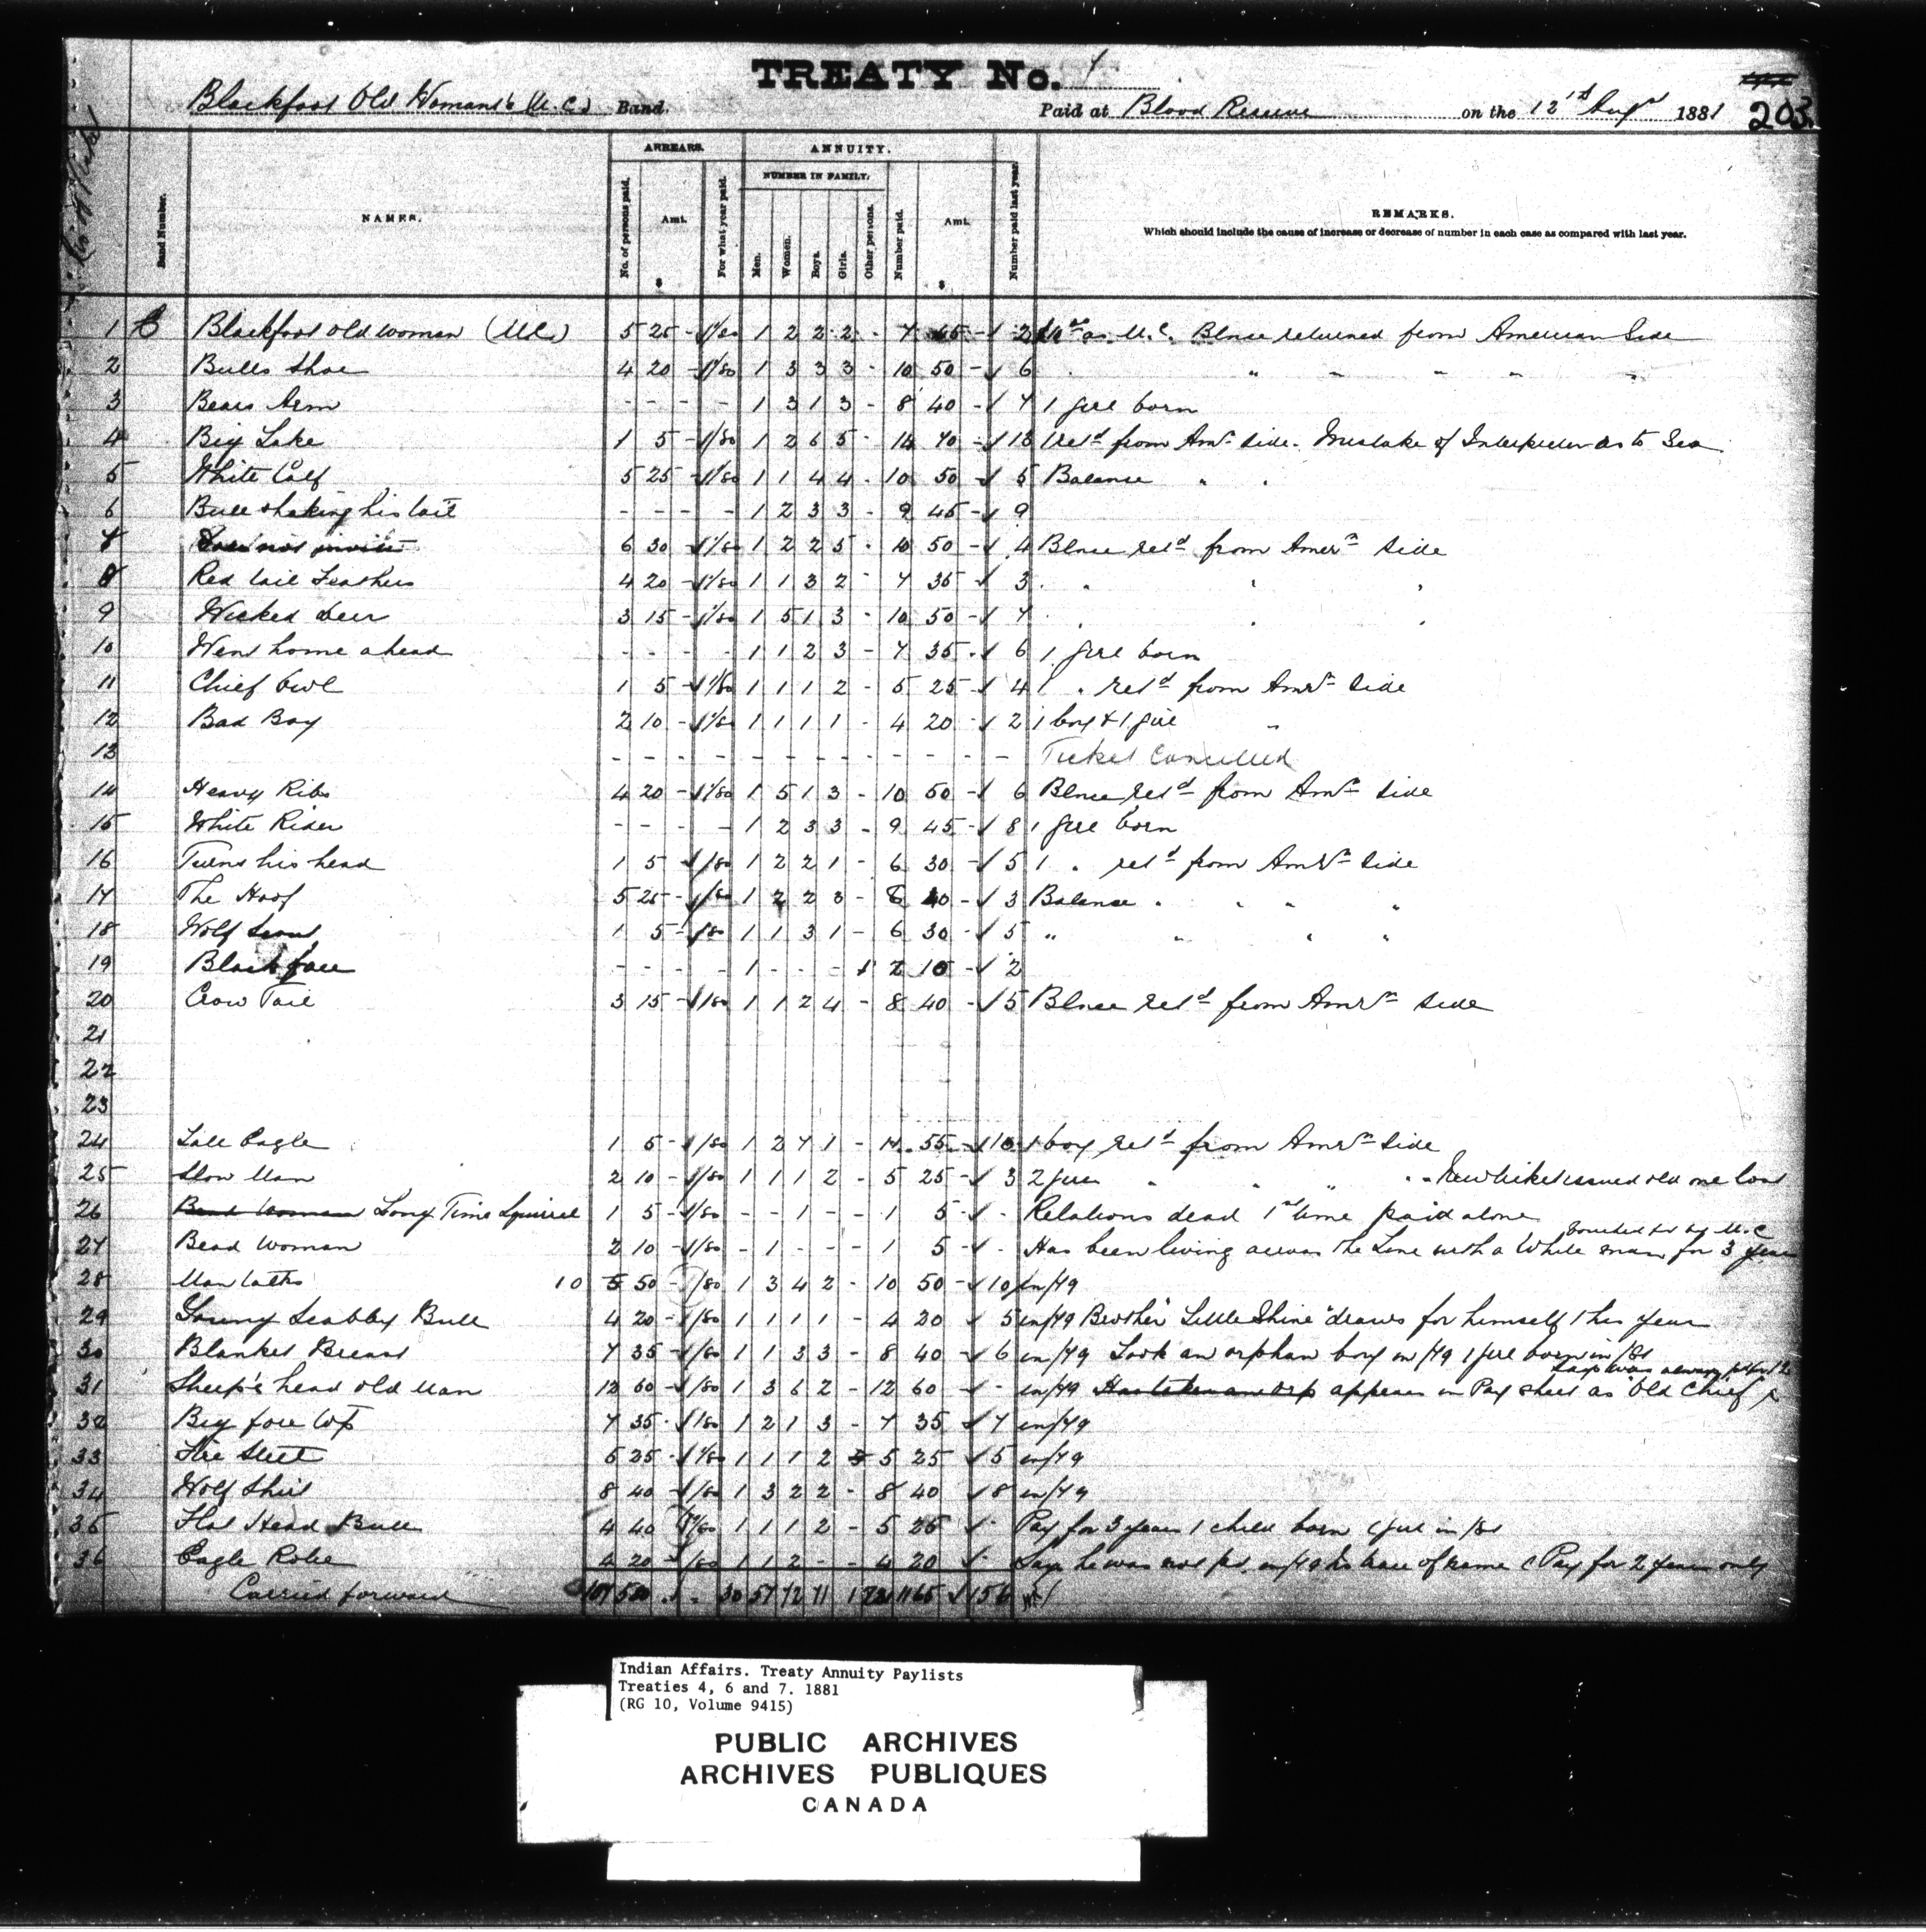 TREATY No. 7
203
Blackfoot Old Womans (M.C.) Band. Paid at Blood Reserve on the 12th Augst 1881
ARREARS. ANNUITY.
NUMBER IN FAMILY.
Band Number. NAMES. No. of persons paid. Amt. $ For what year paid. Men. Women. Boys. Girls. Other persons. Number paid. Amt. $ Number paid last year. REMARKS.
Which should include the cause of increase or decrease of number in each case as compared with last year.
1 Blackfoot Old Woman (M.C.) 5 25 - 1/80 1 2 2 2 - 7 45 - 2 as M.C. Blnce returned from American Side
2 Bulls Shoe 4 20 - 1/80 1 3 3 3 - 10 50 - 6 " " " " "
3 Bears Arm - - - - 1 3 1 3 - 8 40 - 7 1 girl born
4 Big Lake 1 5 - 1/80 1 2 6 5 - 14 70 - 13 1 retd from Amn side. Mistake of Interpreter as to Sex
5 White Calf 5 25 - 1/80 1 1 4 4 - 10 50 - 5 Balance " "
6 Bull shaking his tail - - - - 1 2 3 3 - 9 45 - 9
7 6 30 - 1/80 1 2 2 5 - 10 50 - 4 Blnce retd from Amern Side
8 Red tail Feathers 4 20 - 1/80 1 1 3 2 - 7 35 - 3 " " "
9 Wicked Deer 3 15 - 1/80 1 5 1 3 - 10 50 - 7 " " "
10 Went home ahead - - - - 1 1 2 3 - 7 35 - 6 1 girl born
11 Chief Owl 1 5 - 1/80 1 1 1 2 - 5 25 - 4 1 " retd from Amrn Side
12 Bad Boy 2 10 - 1/80 1 1 1 1 - 4 20 - 2 1 boy & 1 girl "
13 - - - - - - - - - - - - - Ticket Cancelled
14 Heavy Ribs 4 20 - 1/80 1 5 1 3 - 10 50 - 6 Blnce retd from Amn Side
15 White Rider - - - - 1 2 3 3 - 9 45 - 8 1 girl born
16 Turns his head 1 5 1/80 1 2 2 1 - 6 30 - 5 1 " retd from Amrn Side
17 The Hoof 5 25 - 1/80 1 2 2 3 - 8 40 - 3 Balance " " " "
18 Wolf 1 5 - 1/80 1 1 3 1 - 6 30 - 5 " " " "
19 Black face - - - - 1 - - - 1 2 10 - 2
20 Crow Tail 3 15 - 1/80 1 1 2 4 - 8 40 - 5 Blnce retd from Amrn Side
21
22
23
24 Tall Eagle 1 5 - 1/80 1 2 7 1 - 11 55 - 10 1 boy retd from Amrn Side
25 Slow Man 2 10 - 1/80 1 1 1 2 - 5 25 - 3 2 girls " " " " New ticket issued old one lost
26 Bead Woman Long Time Squirrel 1 5 - 1/80 - - 1 - - 1 5 - - Relations dead 1st time paid alone
vouched for by M.C
27 Bead Woman 2 10 - 1/80 - 1 - - - 1 5 - - Has been living across the Line with a White man for 3 years
28 10 5 50 - 1/80 1 3 4 2 - 10 50 - 10 in/79
29 Young Scabby Bull 4 20 - 1/80 1 1 1 1 - 4 20 5 in/79 Brother "Little Shine" draws for himself this year
30 Blanket Breast 7 35 - 1/80 1 1 3 3 - 8 40 - 6 in/79 Took an orphan boy in/79 1 girl born in/81
Says was always pd for 12
31 Sheep's head old Man 12 60 - 1/80 1 3 6 2 - 12 60 - in/79 appears in Pay sheet as Old Chief
32 Big face 7 35 - 1/80 1 2 1 3 - 7 35 7 in/79
33 Fire Steel 5 25 - 1/80 1 1 1 2 5 25 5 in/79
34 Wolf Shirt 8 40 - 1/80 1 3 2 2 - 8 40 8 in/79
35 Flat Head Bull 4 40 1 1 1 2 - 5 25 - Pay for 3 years 1 child born girl in/81
36 Eagle Robe 4 20 - 1/80 1 1 2 - - 4 20 - Says he was not pd. in/79 no trace of name Pay for 2 years only
Carried forward 107 550 30 57 72 71 1165 156
Indian Affairs. Treaty Annuity Paylists
Treaties 4, 6 and 7. 1881
(RG 10, Volume 9415)
PUBLIC ARCHIVES
ARCHIVES PUBLIQUES
CANADA